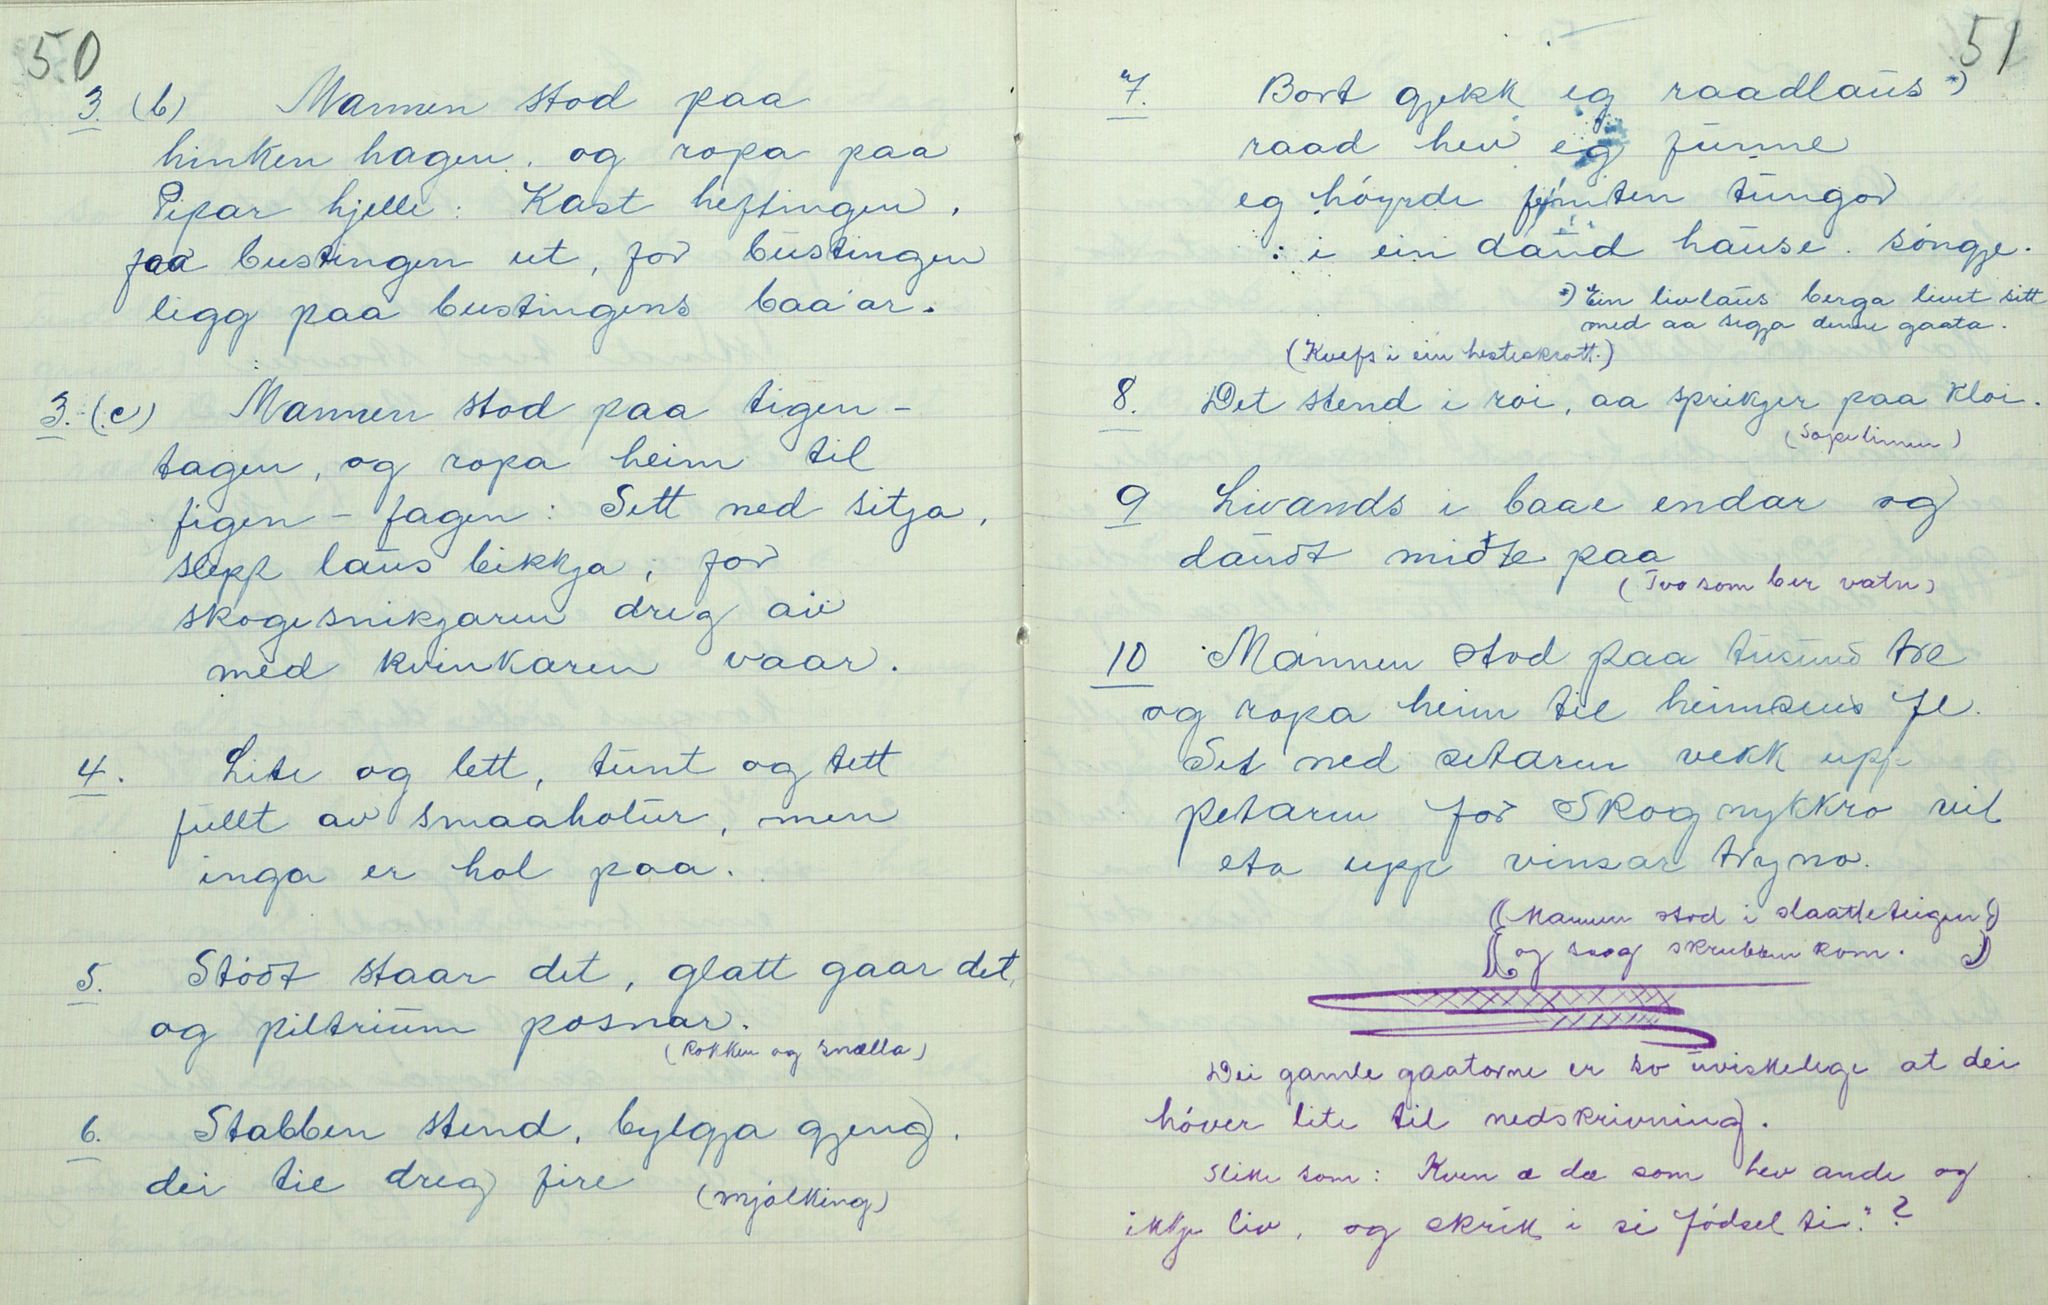 50
3. (b) Mannen stod paa
hinken hagen, og ropa paa
Pipar hjelle: Kast heftingen,
faa bustingen ut, for bustingen
ligg paa bustingens baa'ar.
3. (c) Mannen stod paa tigen-
tagen, og ropa heim til
figen-fagen: Sett ned sitja,
slepp laus bikkja, for
skogesnikjaren dreg av
med kvinkaren vaar.
4. Lite og lett, tunt og tett
fullt av smaaholur, men
inga er hol paa.
5. Stødt staar det, glatt gaar det,
og piltrium posnar.
(Rokken og snella)
6. Stabben stend, bylgja gjeng,
dei tie dreg fire
(mjølking)
51
7. Bort gjekk eg raadlaus *)
raad hev eg funne
eg høyrde femten tungor
i ein daud hause songje.
*) Ein livlaus berga livet sitt
med aa segja denne gaata.
(Kvefs i ein hesteskrott.)
8. Det stend i roi, aa sprikjer paa kloi.
(Sopelimen)
9 Livands i baae endar og
daudt midte paa
(Tvo som ber vatn)
10 Mannen stod paa tusund tre
og ropa heim til heimsens fe.
Set ned setaren vekk upp
petaren for Skognykkro vil
eta upp vinsar tryno.
(Mannen stod i slaatteteigen)
(og saag skrubben kom.)
Dei gamle gaatorne er so uviskelege at dei
høver lite til nedskrivning.
Slike som: Kven æ dæ som hev ande og
ikkje liv, og skrik i si fødsel ti"?